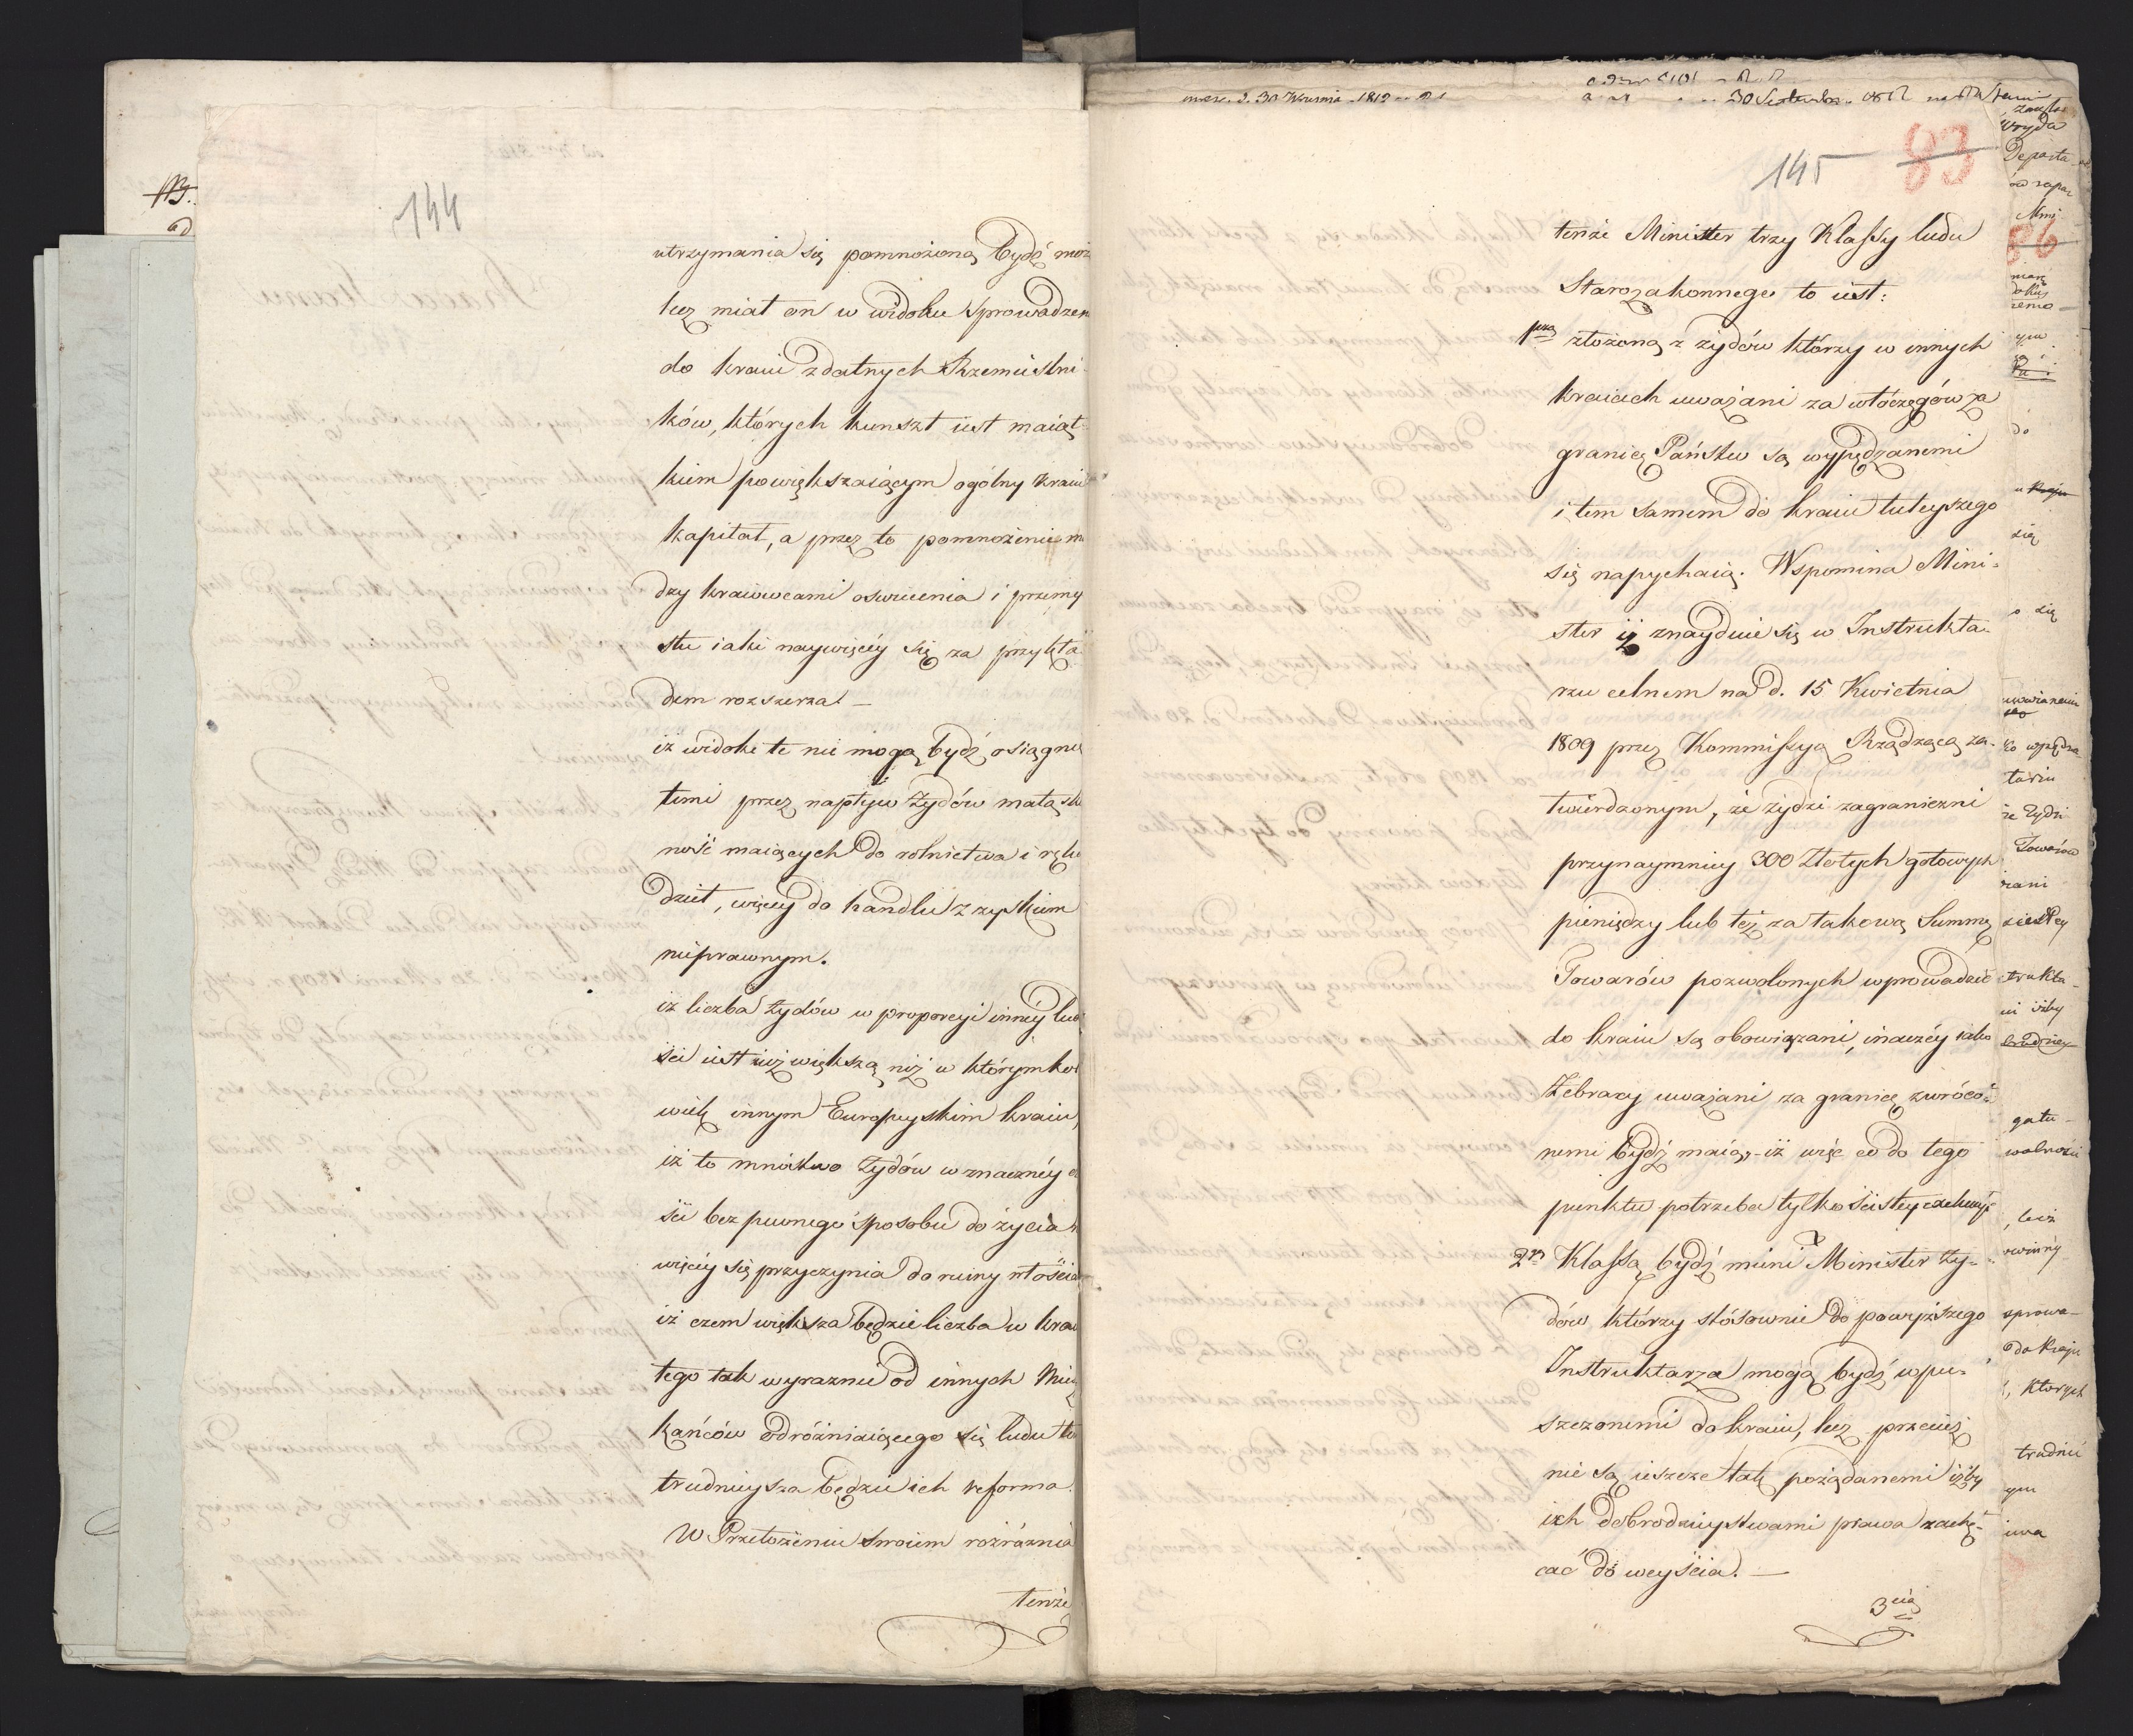 144
utrzymania się pomnożoną bydź moż
lecz miał on w widoku sprowadzen
do kraiu zdatnych Rzemieślni-
ków, których kunszt iest maiąt-
kiem powiększaiącym ogólny kraiu
kapitał, a przez to pomnożenie mi
dzy kraiowcami oswiecenia i przemy
słu iaki naywięcéy się za przykła
dem rozszerza. —
iż widoki te nie mogą bydź osiągnię
temi przez napływ Żydów małą skł
ność maiących do rolnictwa i ręko
dzieł, więcéy do handlu z zyskiem
nieprawnym.
iż liczba Żydów w proporcyi innéy lud
ści iest iuż większą niż w którymkol
wiek innym Europeyskim kraiu,
iż to mnóstwo Żydów w znacznéy cz
ści bez pewnego sposobu do życia n
więcéy się przyczynia do ruiny włościa
iż czem większa będzie liczba w krai
tego tak wyraznie od innych Miesz
kańców odróżniaiącego się ludu te
trudnieysza będzie ich reforma.
W Przełożeniu swoim rożróżnia
tenże
30 Września 1812
145 83
tenże Minister trzy Klassy ludu
Starozakonnego to iest:
1szą złożoną z żydów którzy w innych
kraiach uważani za włóczęgów za
granicę Państw są wypędzanemi
i tem samem do kraiu tuteyszego
się napychaią. Wspomina Mini-
ster iż znayduie się w Instrukta-
rzu celnem na d. 15 Kwietnia
1809 przez Kommissyą Rządzącą za-
twierdzonym, że żydzi zagraniczni
przynaymniey 300 Złotych gotowych
pieniędzy lub też za takową Summę
Towarów pozwolonych wprowadzić
do kraiu są obowiązani, inaczéy iako
Żebracy uważani za granicę zwróco-
nemi bydź maią, — iż więc co do tego
punktu potrzeba tylko ścisłey exekucyi
2gą Klassą bydź mieni Minister Ży-
dów którzy stósownie do powyższego
Instruktarza mogą bydź wpu-
szczonemi do kraiu, lecz przecież
nie są ieszcze tak pożądanemi iżby
ich dobrodzieystwami prawa zachę-
cać do weyścia. —
3cią
Departa-
86
się
tariu
że Żydzi
Towarów
trukta-
iżby
gatu-
wolności
sprowa-
do kraju
których
trudnić